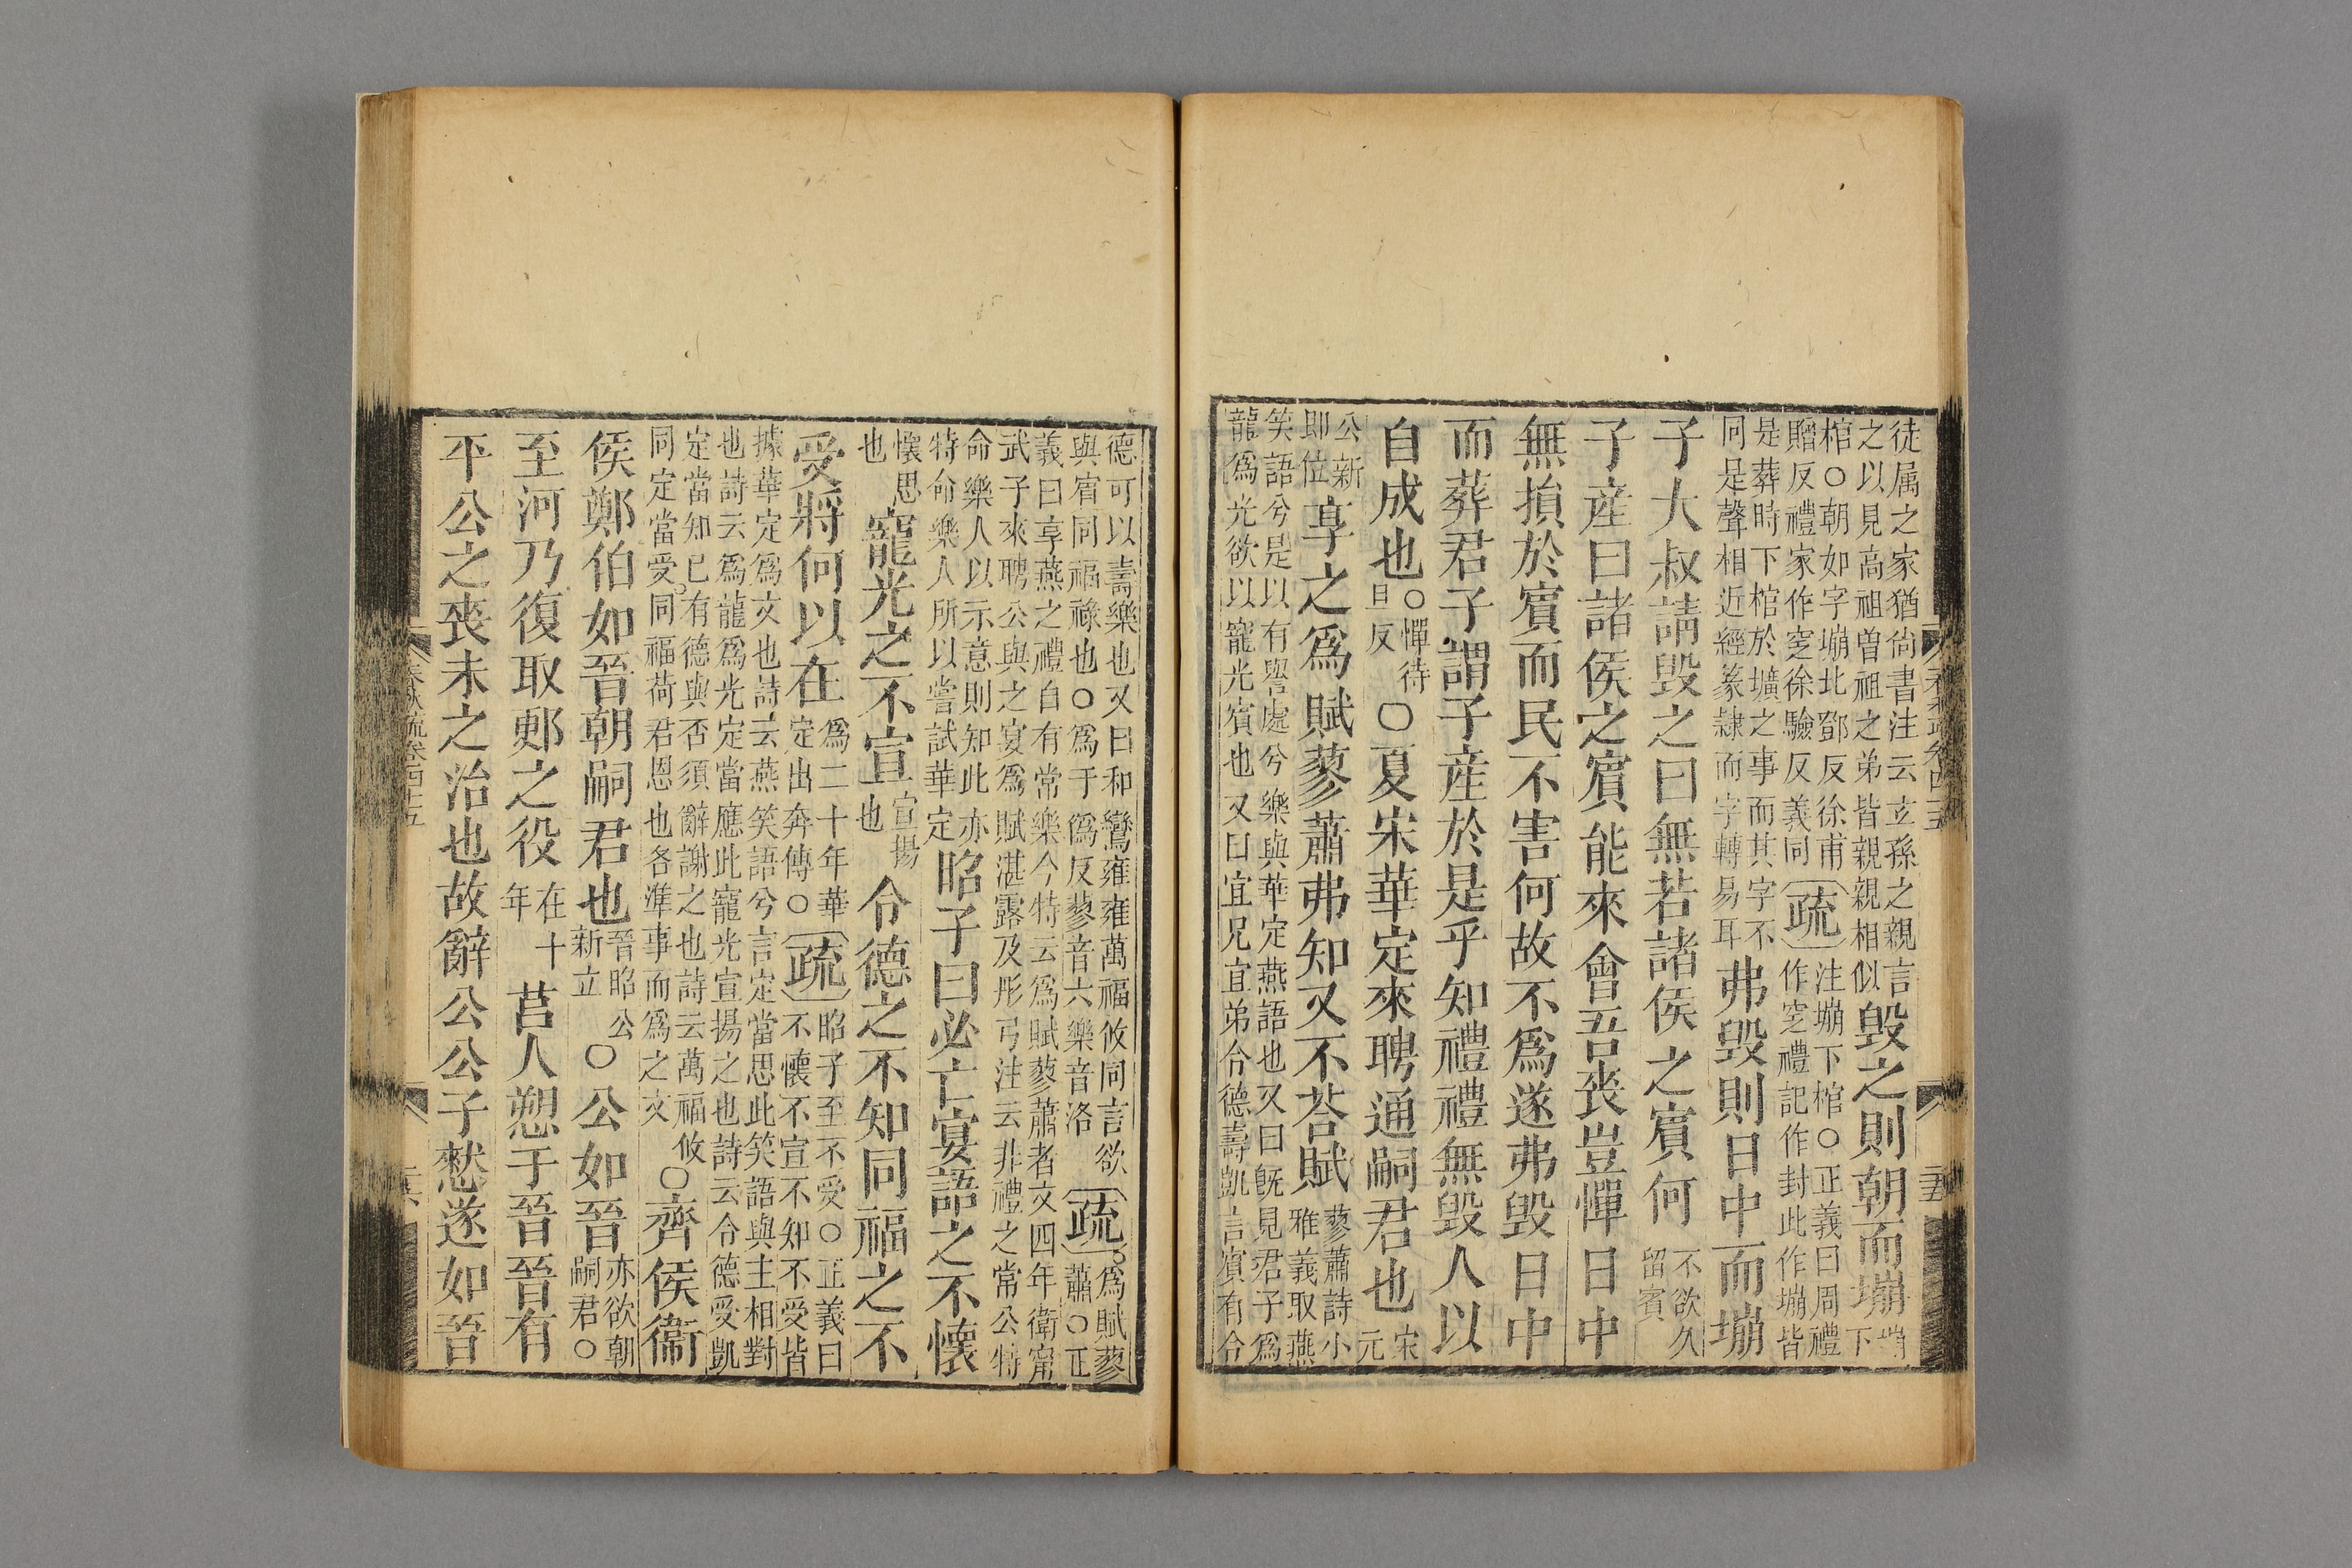 徒属之家猶尚書注云玄孫之親言
之以見高祖曽祖之弟皆親親相似
毁之則朝而塴
塴
下
棺○朝如字塴北鄧反徐甫
贈反禮家作窆徐驗反義同
疏
注塴下棺○正義曰周禮
作窆禮記作封此作塴皆
是葬時下棺於壙之事而其字不
同是聲相近經篆隷而字轉易耳
弗毁則日中而塴
子大叔請毁之曰無若諸侯之賔何
不欲久
留賔
子産曰諸侯之賔能來會吾喪豈憚日中
無損於賔而民不害何故不爲遂弗毁日中
而葬君子謂子産於是乎知禮禮無毁人以
自成也
○憚待
旦反
○夏宋華定來聘通嗣君也
宋
元
公新
即位
享之爲賦蓼蕭弗知又不荅賦
蓼蕭詩小
雅義取燕
笑語兮是以有譽處兮樂與華定燕語也又曰旣見君子爲
龍爲光欲以寵光賔也又曰宜兄宜弟令德壽凱言賔有令
德可以壽樂也又曰和鸞雍雍萬福攸同言欲
與賔同福祿也○爲于僞反蓼音六樂音洛
疏
爲賦蓼
蕭○正
義曰享燕之禮自有常樂今特云爲賦蓼蕭者文四年衛甯
武子來聘公與之宴爲賦湛露及彤弓注云非禮之常公特
命樂人以示意則知此亦
特命樂人所以嘗試華定
昭子曰必亡宴語之不懷
懷思
也
寵光之不宣
宣揚
也
令德之不知同福之不
受將何以在
爲二十年華
定出奔傳○
疏
昭子至不受○正義曰
不懷不宣不知不受皆
據華定爲文也詩云燕笑語兮言定當思此笑語與主相對
也詩云爲龍爲光定當應此寵光宣揚之也詩云令德受凱
定當知已有德與否須辭謝之也詩云萬福攸
同定當受同福荷君恩也各準事而爲之文
○齊侯衞
侯鄭伯如晉朝嗣君也
晉昭公
新立
○公如晉
亦欲朝
嗣君○
至河乃復取郠之役
在十
年
莒人愬于晉晉有
平公之喪未之治也故辭公公子憖遂如晉